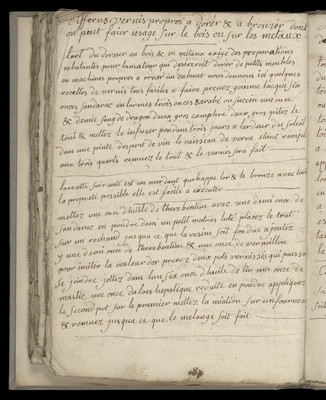 differens vernis propres a dorér & a bronzér dont
on peut faire usage sur le bois ou sur les metaux
lart du doreur en bois & en métaux exige des preparations
rebutantes pour lamateur qui desireroit dorér de petits meubles
ou machines propres a orner un cabinet nous donnons ici quelques
recettes de vernis tres faciles a faire prenez gomme lacque six
onces sandarac ou larmes trois onces karabé ou succin une once
& demie sang de dragon deux gros camphre deux gros pilez le
tout & mettez le infuser pendant trois jours a lardeur du soleil
dans une pinte desprit de vin le vaisseau de verre etant rempli
aux trois quarts remuez le tout & le vernis sera fait
la recette suivante est un mordant qui happe lor & le bronze avec toute
la propreté possible elle est facile a executér
mettez une once dhuile de therebentine avec une demi once de
sandarac en poudre dans un petit matras luté placez le tout
sur un rechaud jusqua ce que la resine soit fondue ajoutez
y une demi once de therebentine & une once de vermillon
pour imiter la couleur dor prenez deux pots vernissés qui puissent
se joindre jettez dans lun six once dhuile de lin une once de
mastic une once daloes hepatique reduite en poudre appliquez
le second pot sur le premier mettez la mixtion sur un fourneau
& remuez jusqua ce que le melange soit fait